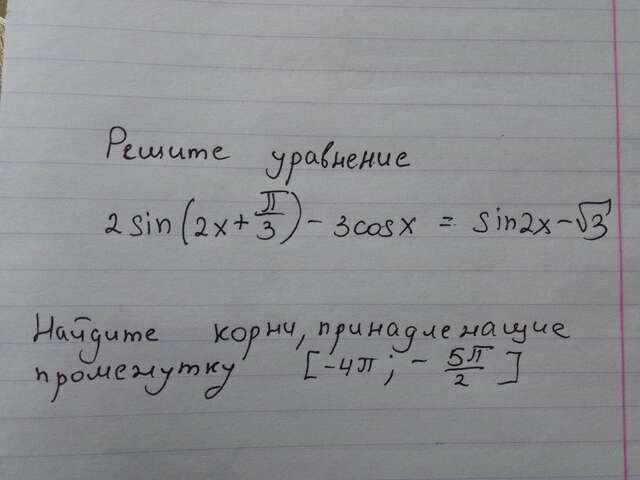 Решите уравнение
2 sin(2x + π/3) - 3cosx = sin2x - √3
Найдите корни, принадлежащие
промежутку [-4π ; - 5π/2]